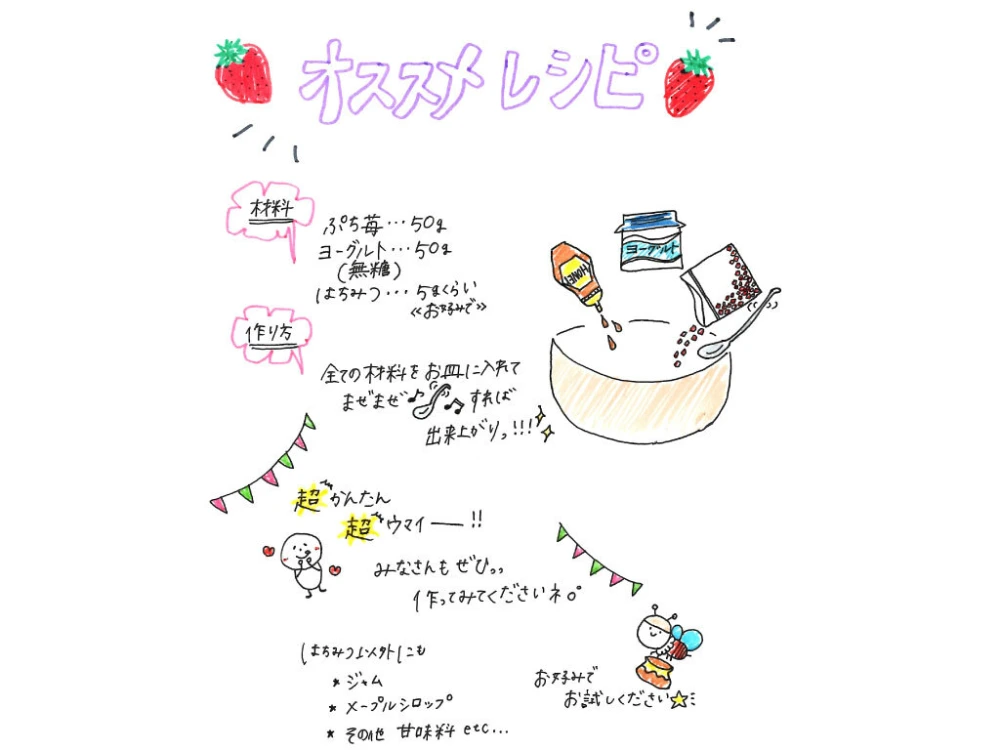 オススメレシピ
材料
ぷち苺…50g
ヨーグルト…50g
(無糖)
はちみつ…5gくらい
《お好みで》
ヨーグルト
HONEY
作り方
全ての材料をお皿に入れて
まぜまぜ♪ ♫すれば
出来上がりっ!!!
超かんたん
超ウマイ――!!
みなさんもぜひっっ
作ってみてくださいネ。
はちみつ以外にも
* ジャム
* メープルシロップ
* その他 甘味料 etc...
お好みで
お試しください☆